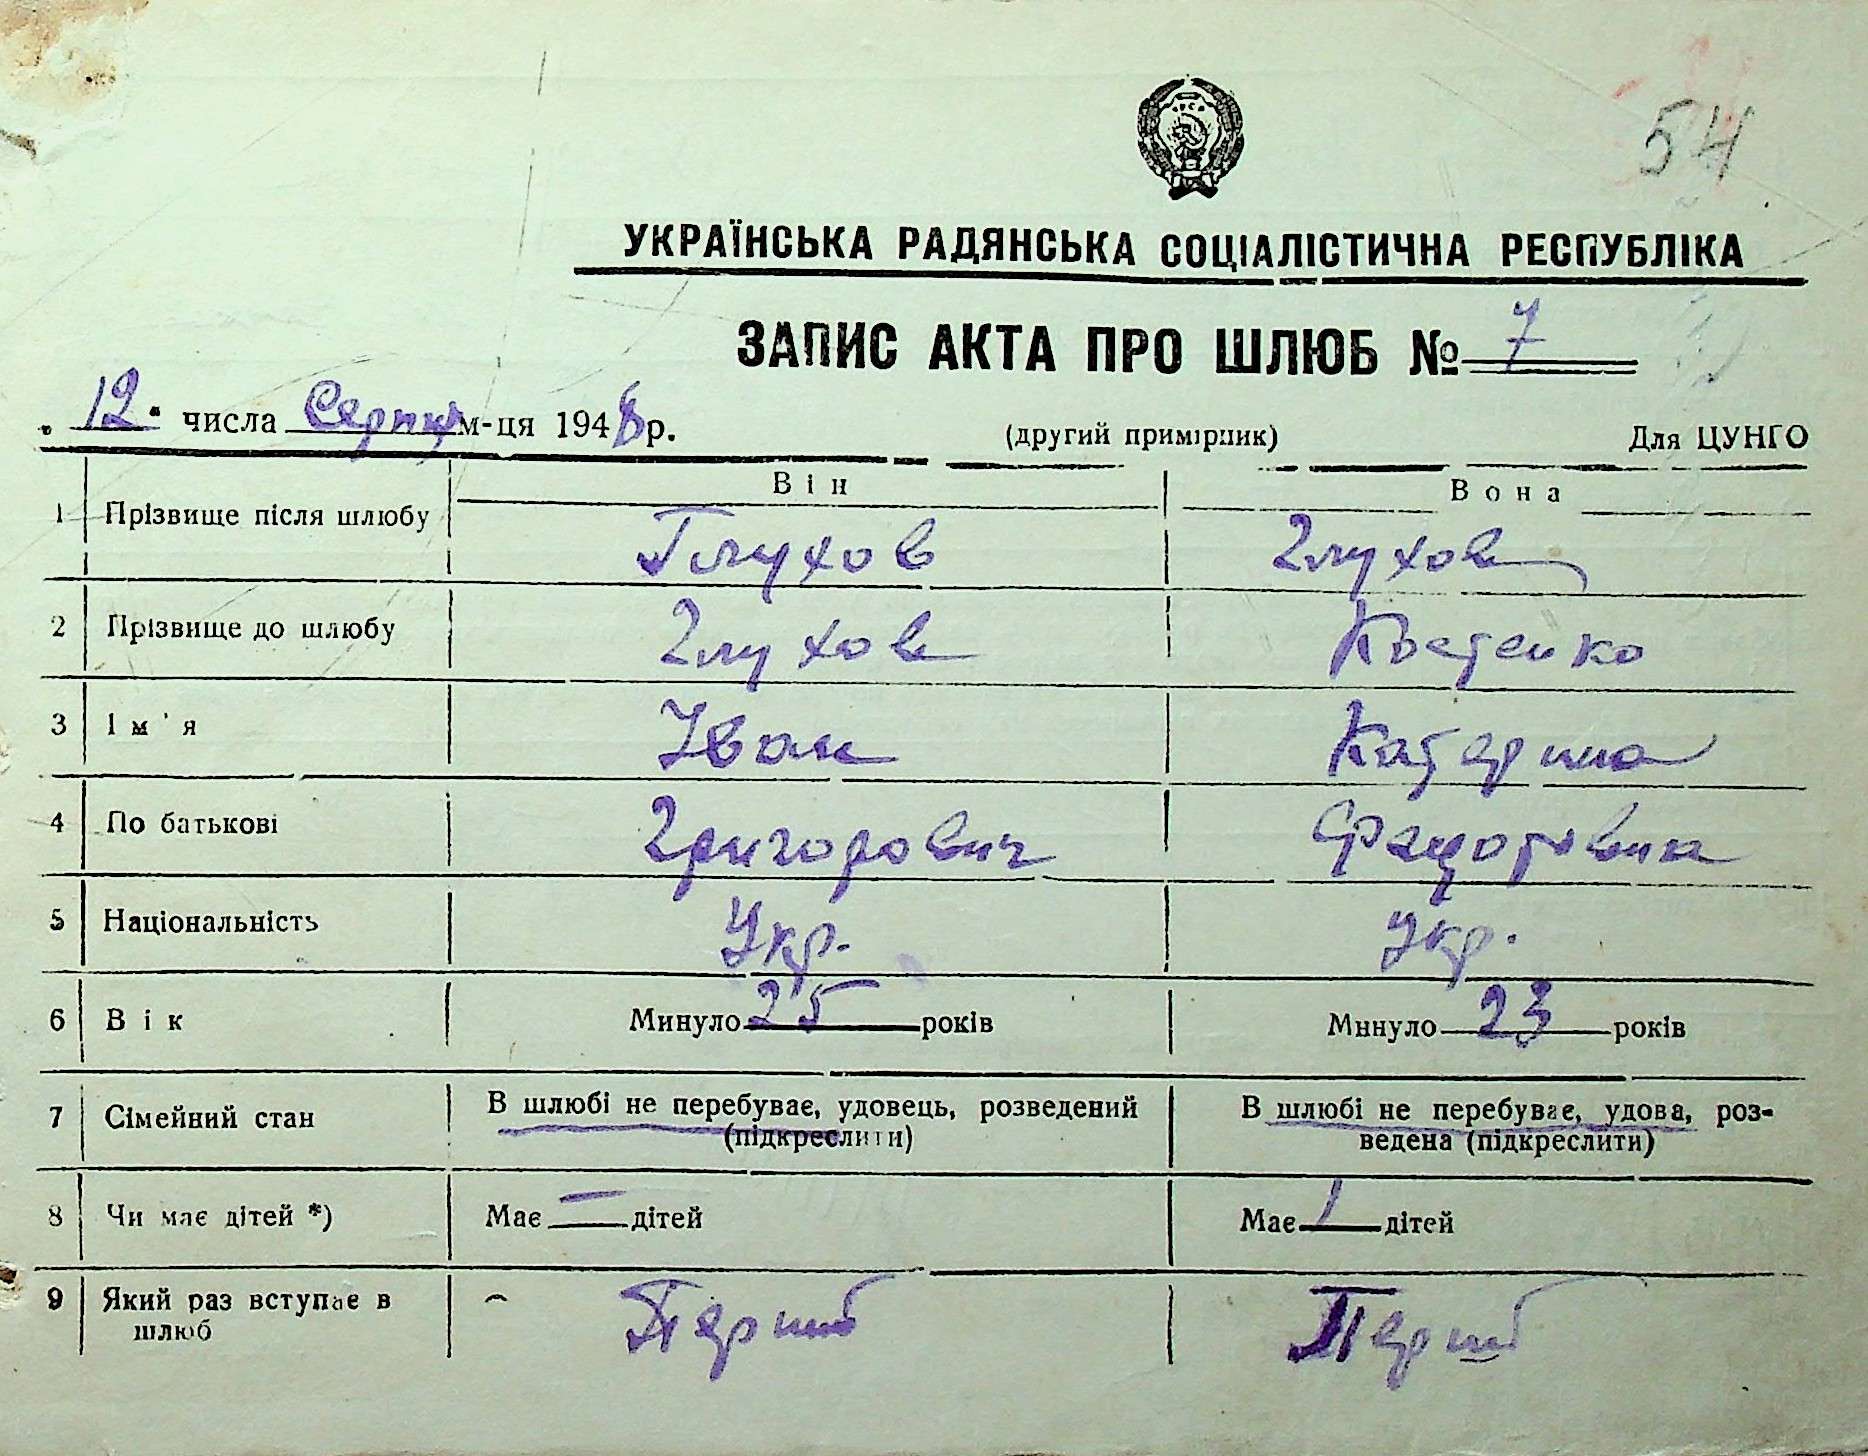 54
УКРАЇНСЬКА РАДЯНСЬКА СОЦІАЛІСТИЧНА РЕСПУБЛІКА
ЗАПИС АКТА ПРО ШЛЮБ № 7
„12“ числа Серпня м-ця 1948 р. (другий примірник) Для ЦУНГО
Він Вона
1 Прізвище після шлюбу Глухов Глухова
2 Прізвище до шлюбу Глухов Костенко
3 Ім'я Іван Катерина
4 По батькові Григорович
5 Національність Укр. Укр.
6 Вік Минуло 25 років Минуло 23 років
7 Сімейний стан В шлюбі не перебуває, удовець, розведений (підкреслити) В шлюбі не перебуває, удова, роз-
ведена (підкреслити)
8 Чи має дітей *) Має — дітей Має 1 дітей
9 Який раз вступає в Перший Перший
шлюб